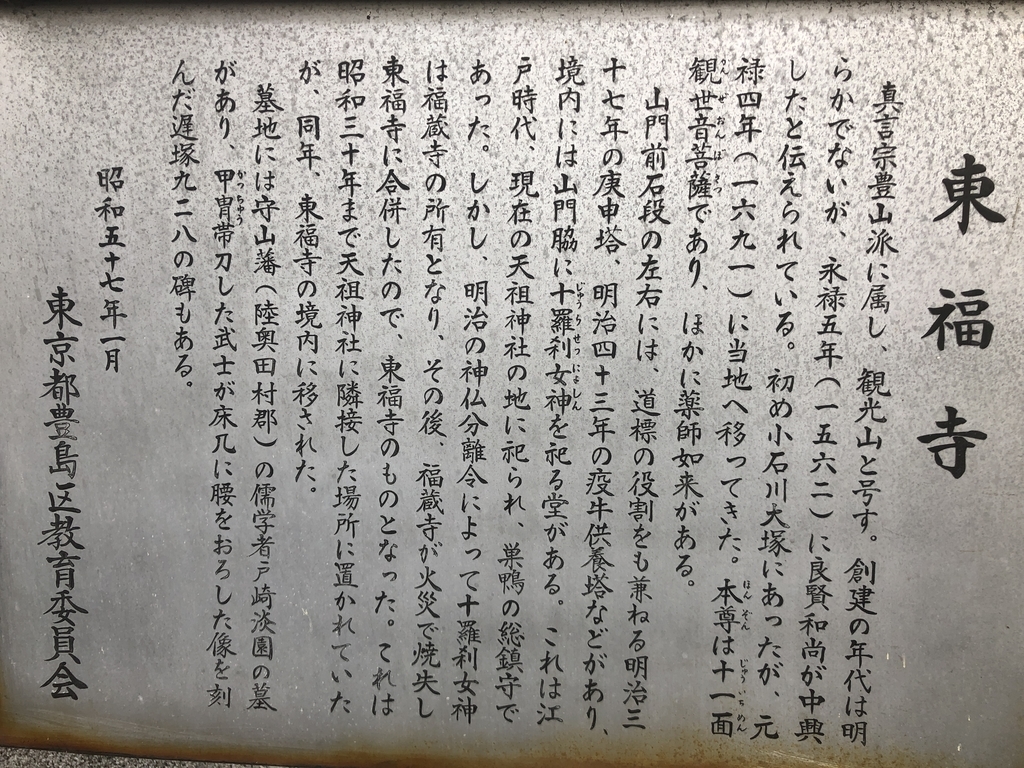 東福寺
真言宗豊山派に属し、観光山と号す。創建の年代は明
らかでないが、永禄五年(一五六二)に良賢和尚が中興
したと伝えられている。初め小石川大塚にあったが、元
禄四年(一六九一)に当地へ移ってきた。本尊は十一面
観世音菩薩であり、ほかに薬師如来がある。
山門前石段の左右には、道標の役割をも兼ねる明治三
十七年の庚申塔、明治四十三年の疫牛供養塔などがあり、
境内には山門脇に十羅刹女神を祀る堂がある。これは江
戸時代、現在の天祖神社の地に祀られ、巣鴨の総鎮守で
あった。しかし、明治の神仏分離令によって十羅刹女神
は福蔵寺の所有となり、その後、福蔵寺が火災で焼失し
東福寺に合併したので、東福寺のものとなった。これは
昭和三十年まで天祖神社に隣接した場所に置かれていた
が、同年、東福寺の境内に移された。
墓地には守山藩(陸奥田村郡)の儒学者戸崎淡園の墓
があり、甲冑帯刀した武士が床几に腰をおろした像を刻
んだ遅塚九二八の碑もある。
昭和五十七年一月
東京都豊島区教育委員会